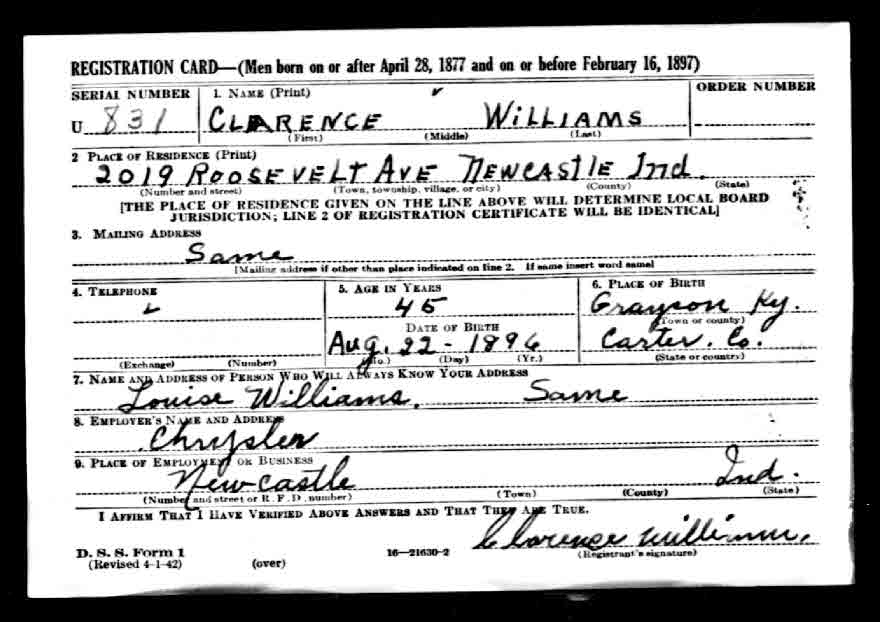 REGISTRATION CARD—(Men born on or after April 28, 1877 and on or before February 16, 1897)
SERIAL NUMBER 1. NAME (Print) ORDER NUMBER
U 831 CLARENCE WILLIAMS
(First) (Middle) (Last)
2 PLACE OF RESIDENCE (Print)
2019 ROOSEVELT AVE NEWCASTLE Ind.
(Number and street) (Town, township, village, or city) (County) (State)
[THE PLACE OF RESIDENCE GIVEN ON THE LINE ABOVE WILL DETERMINE LOCAL BOARD
JURISDICTION; LINE 2 OF REGISTRATION CERTIFICATE WILL BE IDENTICAL]
3. MAILING ADDRESS
Same
[Mailing address if other than place indicated on line 2. If same insert word same]
4. TELEPHONE 5. AGE IN YEARS 6. PLACE OF BIRTH
45 Grayson Ky.
(Town or county)
DATE OF BIRTH
Aug. 22 - 1896 Carter. Co.
(Exchange) (Number) (Mo.) (Day) (Yr.) (State or country)
7. NAME AND ADDRESS OF PERSON WHO WILL ALWAYS KNOW YOUR ADDRESS
Louise Williams. Same
8. EMPLOYER'S NAME AND ADDRESS
Chrysler
9. PLACE OF EMPLOYMENT OR BUSINESS
Newcastle Ind.
(Number and street or R. F. D. number) (Town) (County) (State)
I AFFIRM THAT I HAVE VERIFIED ABOVE ANSWERS AND THAT THEY ARE TRUE.
Clarence Williams.
D. S. S. Form 1 16—21630-2 (Registrant's signature)
(Revised 4-1-42) (over)